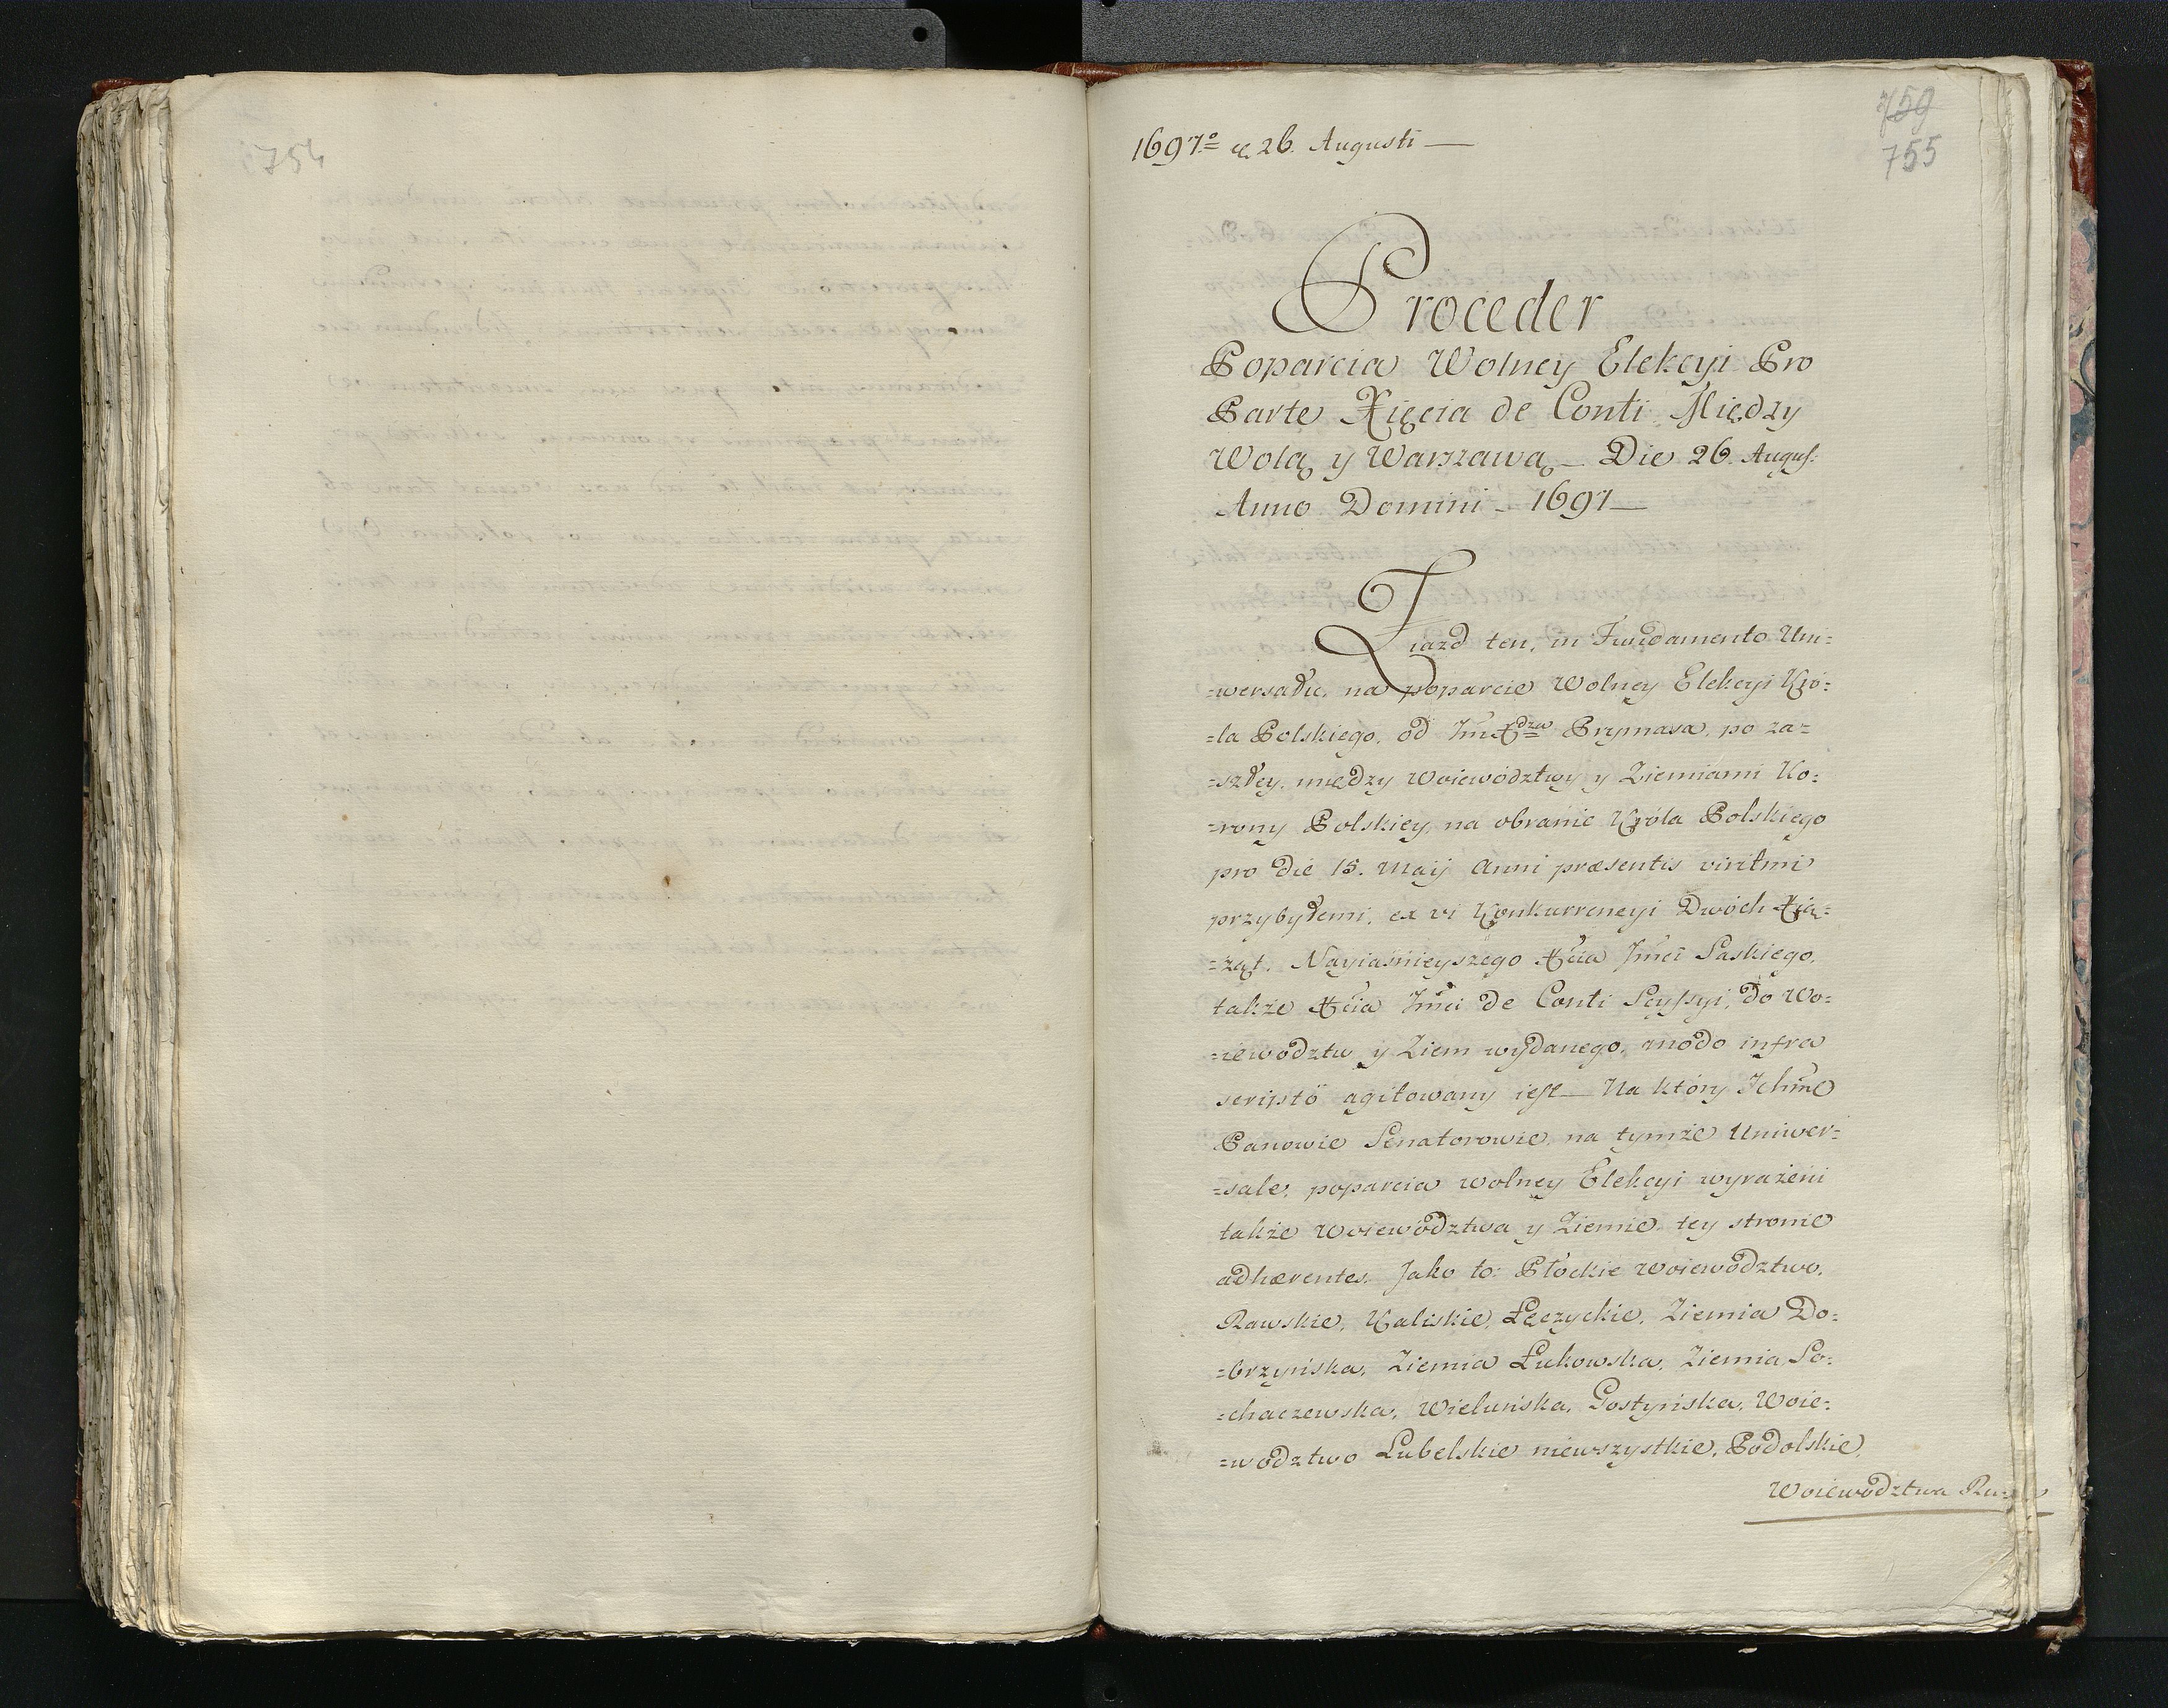 754
759
755
1697.o d. 26. Augusti —
Proceder
Poparcia Wolney Elekcyi Pro
Parte Xięcia de Conti Między
Wolą y Warszawą — Die 26. Augus.
Anno Domini — 1697 —
Ziazd ten, in Fundamento Uni=
=wersału, na poparcie Wolney Elekcyi Kró=
=la Polskiego, od ImXdza Prymasa, po za=
=szłey, między Woiewództwy y Ziemiami Ko=
=rony Polskiey, na obranie Króla Polskiego
pro die 15. Maij Anni præsentis viritmi
przybyłemi, ex vi Konkurrencyi Dwóch Xią=
=żąt, Nayiaśnieyszego Xcia Jmci Saskiego,
także Xcia Jmci de Conti Scyssyi, do Wo=
=iewództw y Ziem wydanego, modo infra
scripto agitowany iest — Na który Ichmc
Panowie Senatorowie, na tymże Uniwer=
=sale, poparcia wolney Elekcyi wyrażeni
także Woiewództwa y Ziemie, tey stronie
adhærentes, Jako to: Płockie Woiewództwo,
Rawskie, Kaliskie, Łęczyckie, Ziemia Do=
=brzyńska, Ziemia Łukowska, Ziemia So=
=chaczewska, Wieluńska, Gostyńska, Woie=
=wodztwo Lubelskie niewszystkie, Podolskie,
Woiewództwa